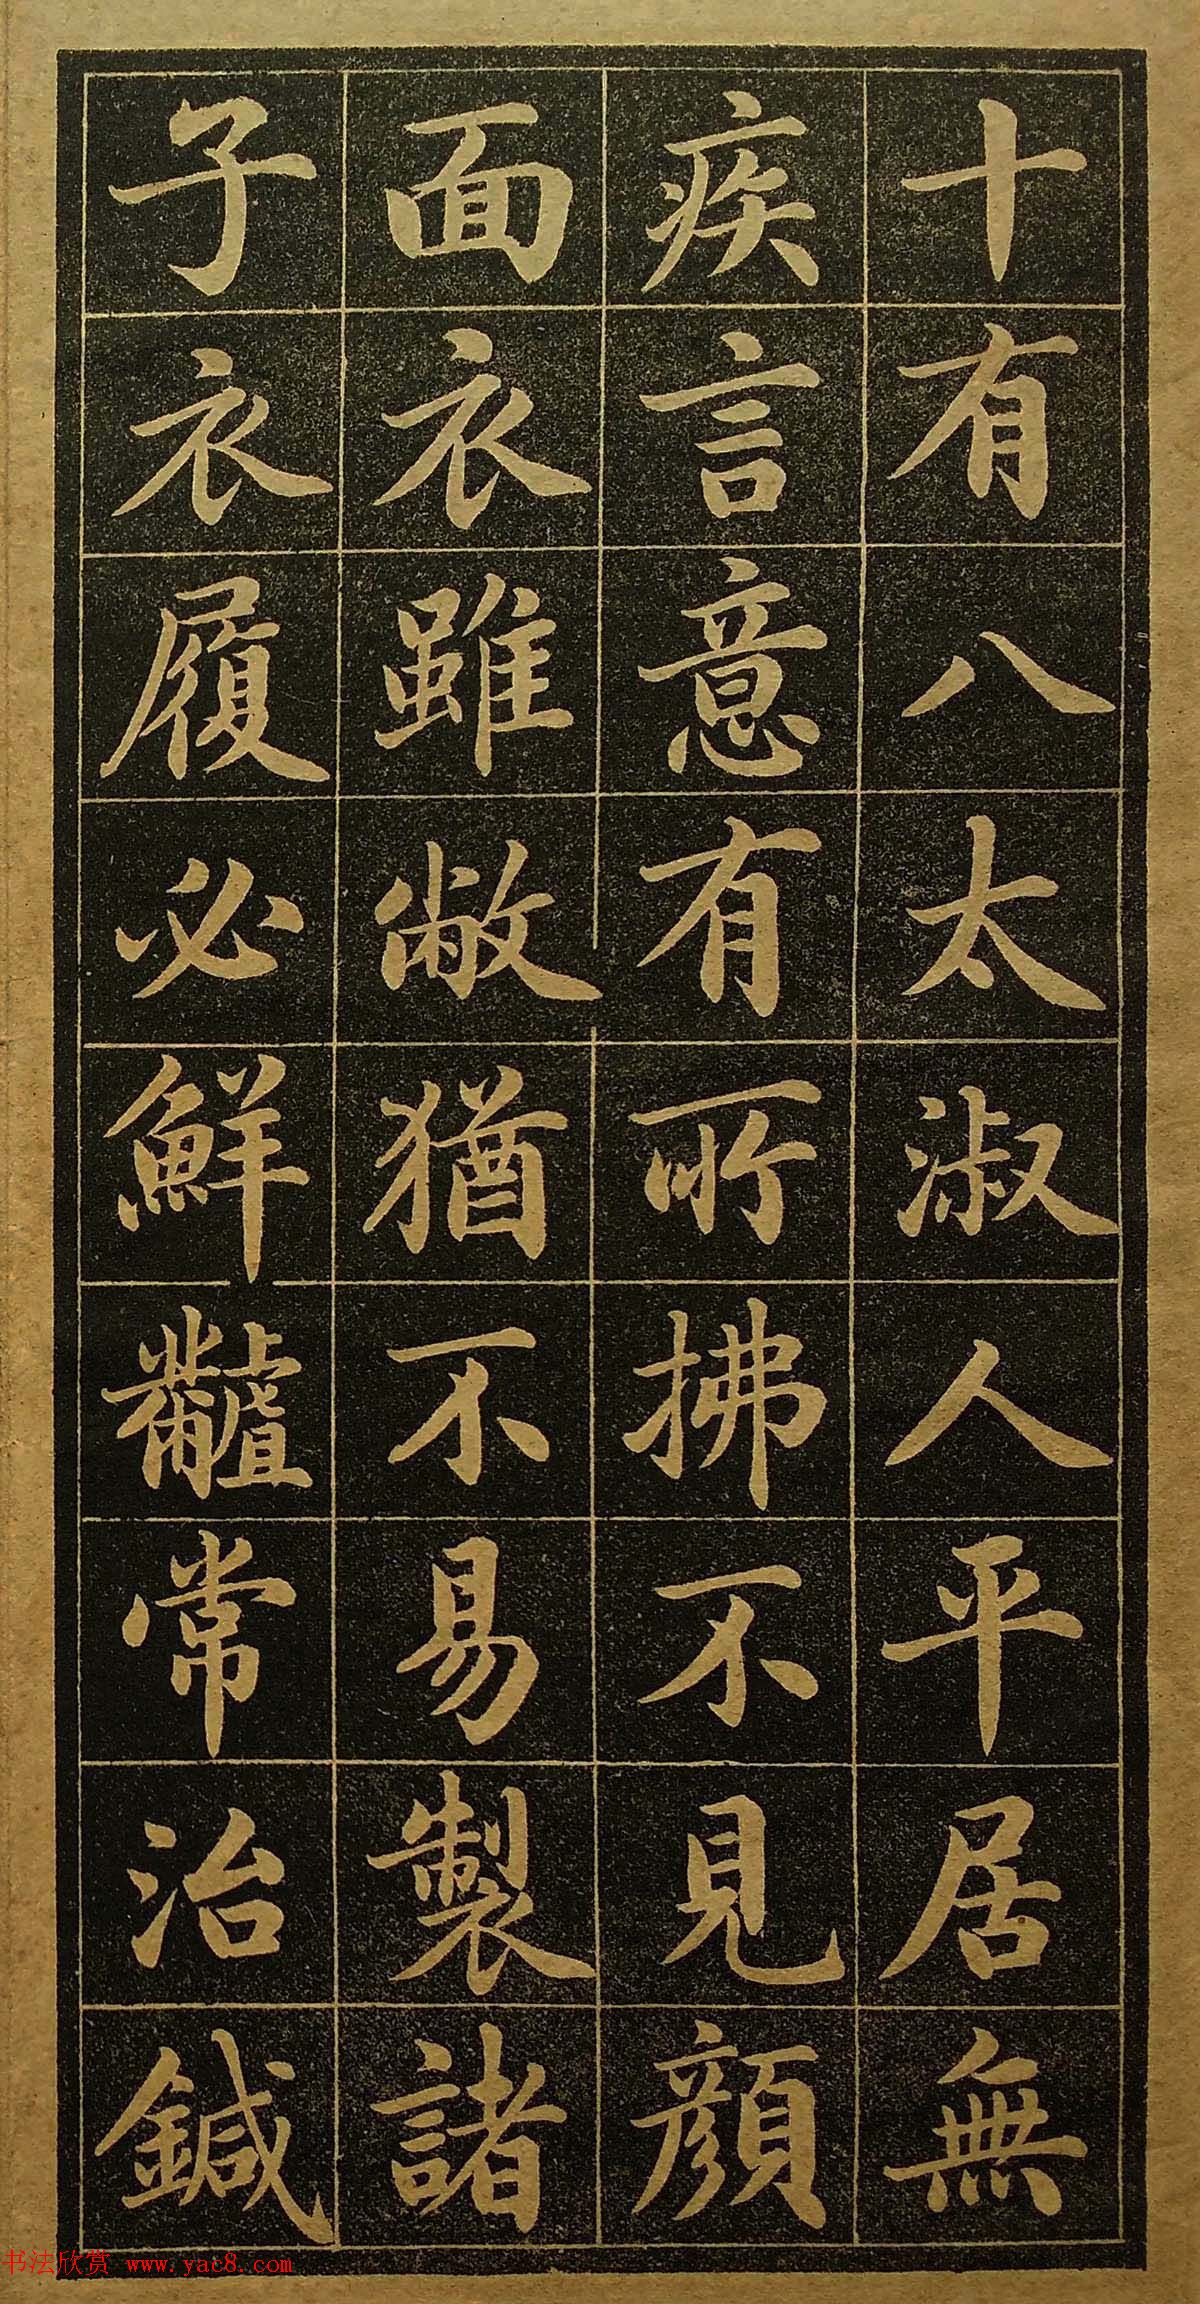 十有八太淑人平居無
疾言意有所拂不見顔
面衣雖敝猶不易製諸
子衣履必鮮齇常治鍼
书法欣赏 www.yac8.com